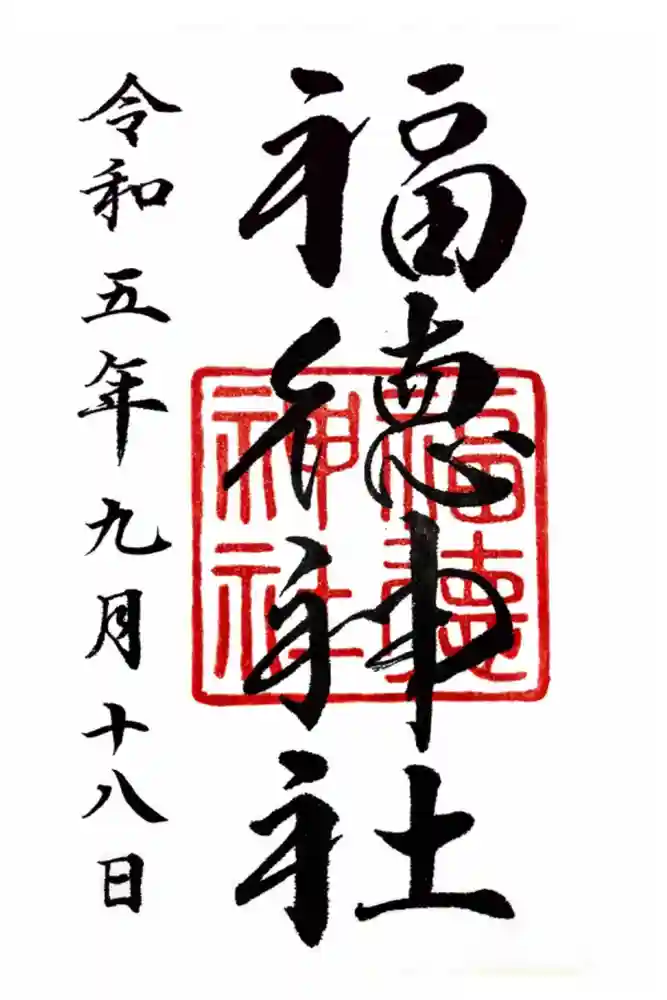 福徳神社
福徳神社
令和五年九月十八日